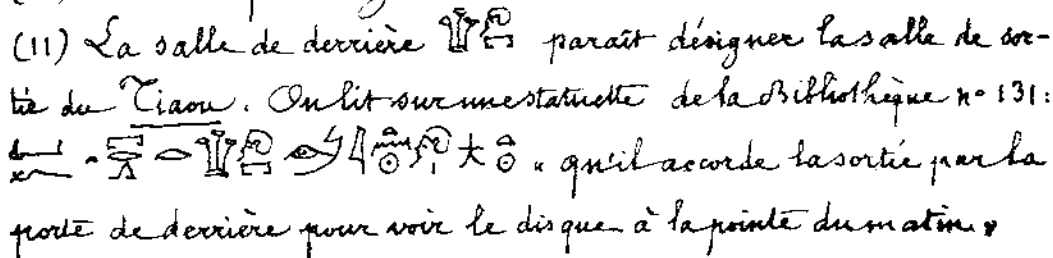 (11) La salle de derrière paraît désigner la salle de sor-
tie du Tiaou. On lit sur une statuette de la Bibliothèque nº 131:
« qu'il accorde la sortie par la
porte de derrière pour voir le disque à la pointe du matin »